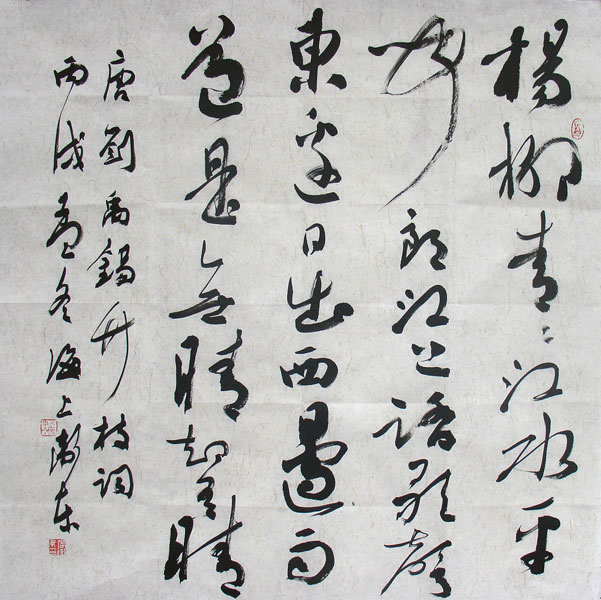 楊柳青〻江水平
聞郎江上踏歌聲
東邊日出西邊雨
道是無晴却有晴
唐劉禹錫竹枝詞
丙戌孟冬海上